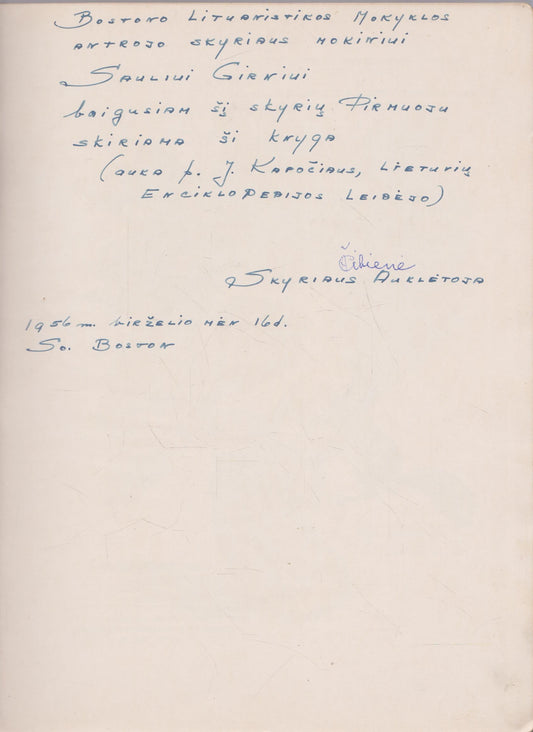 Bostono Lituanistikos Mokyklos
antrojo skyriaus mokiniui
Sauliui Girniui
baigusiam šį skyrių Pirmuoju
skiriama ši knyga
(auka p. J. Kapočiaus, Lietuvių
Enciklopedijos Leidėjo)
Čibienė
Skyriaus Auklėtoja
1956 m. birželio mėn 16 d.
So. Boston